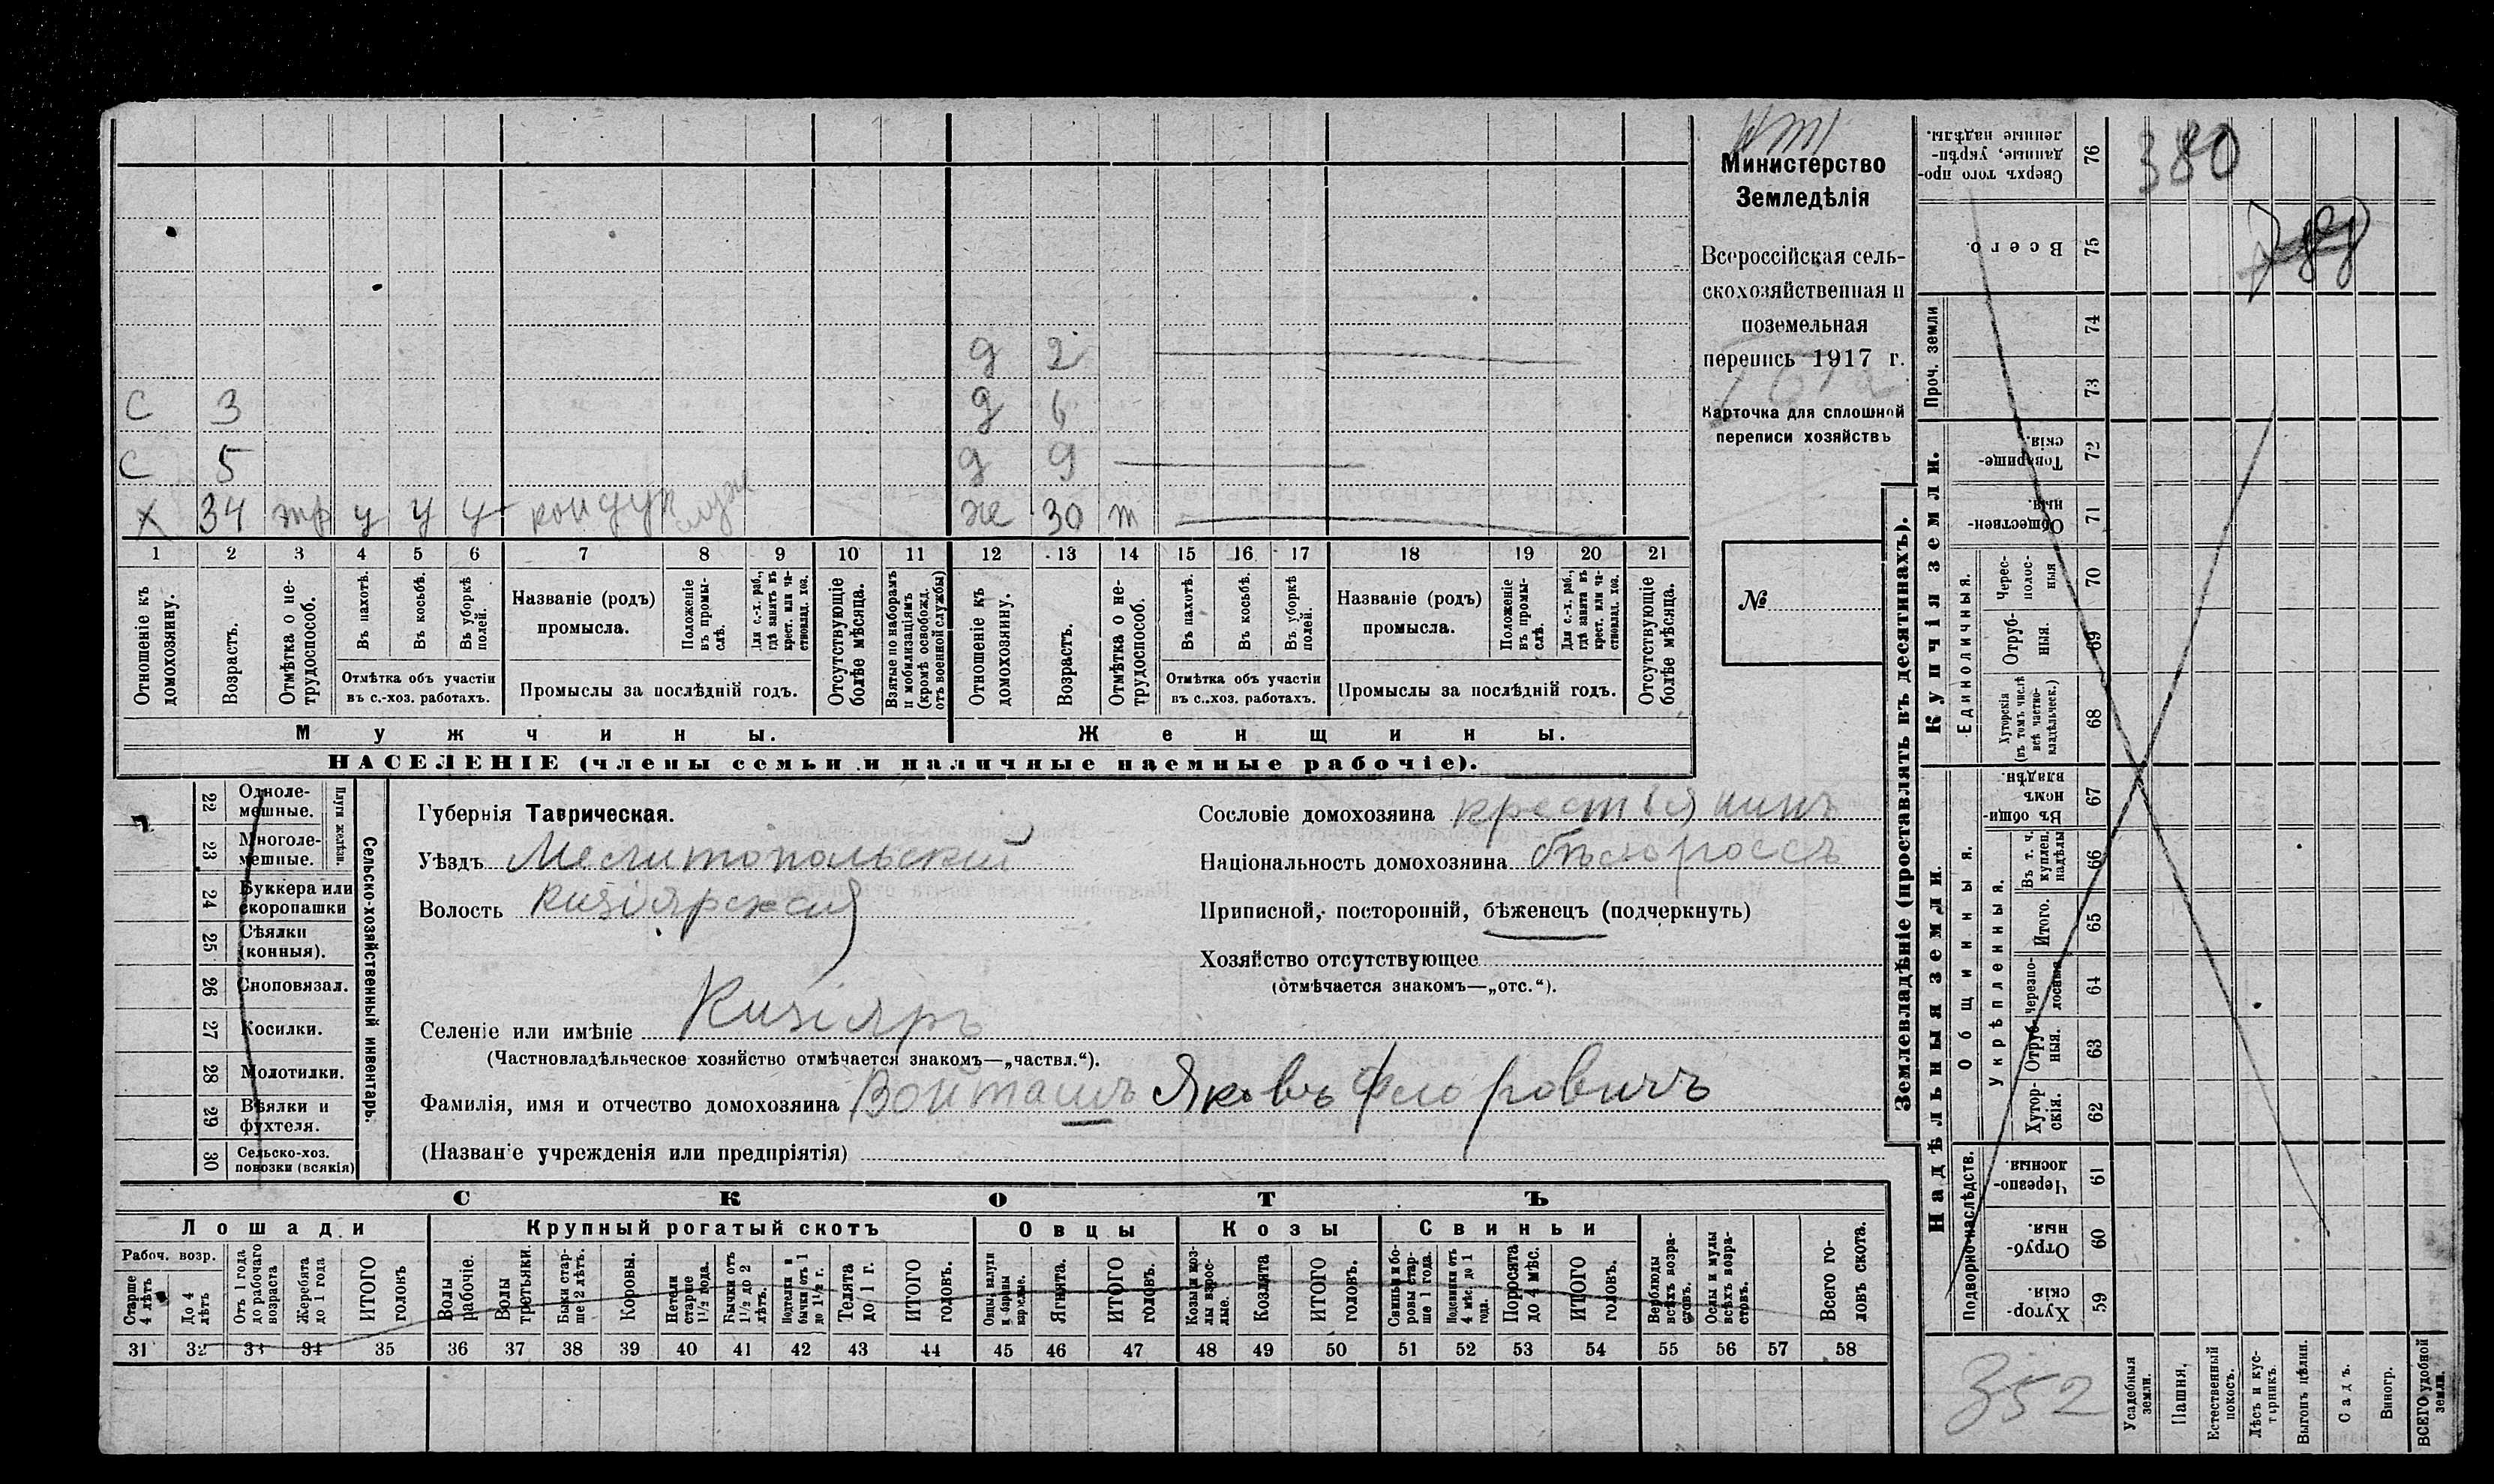 Министерство
Земледѣлія
Всероссійская сель-
скохозяйственная и
поземельная
перепись 1917 г.
Карточка для сплошной
переписи хозяйствъ
№
д 2
С 3 д 6
С 5 д 9
х 34 тр у у у кондук служ же 30 т
1 2 3 4 5 6 7 8 9 10 11 12 13 14 15 16 17 18 19 20 21
Отношеніе къ домохозяину.
Возрастъ.
Отмѣтка о не-трудоспособ.
Въ пахотѣ.
Въ косьбѣ.
Въ уборкѣ полей.
Отмѣтка объ участіи въ с.-хоз. работахъ.
Названіе (родъ) промысла.
Положеніе въ промы-слѣ.
Для с.-х. раб., гдѣ занятъ въ крест. или ча-стновлад. хоз.
Промыслы за послѣдній годъ.
Отсутствующіе болѣе мѣсяца.
Взятые по наборамъ и мобилизаціямъ (кромѣ освобожд. отъ военной службы)
Отношеніе къ домохозяину.
Возрастъ.
Отмѣтка о не-трудоспособ.
Въ пахотѣ.
Въ косьбѣ.
Въ уборкѣ полей.
Отмѣтка объ участіи въ с.-хоз. работахъ.
Названіе (родъ) промысла.
Положеніе въ промы-слѣ.
Для с.-х. раб., гдѣ занята въ крест. или ча-стновлад. хоз.
Промыслы за послѣдній годъ.
Отсутствующіе болѣе мѣсяца.
Мужчины. Женщины.
НАСЕЛЕНІЕ (члены семьи и наличные наемные рабочіе).
22 Одноле-мешные.
23 Многоле-мешные.
Плуги желѣзн.
24 Буккера или скоропашки
25 Сѣялки (конныя).
26 Сноповязал.
27 Косилки.
28 Молотилки.
29 Вѣялки и фухтеля.
30 Сельско-хоз. повозки (всякія)
Сельско-хозяйственный инвентарь.
Губернія Таврическая.
Уѣздъ Мелитопольскій
Волость Кизіярская
Селеніе или имѣніе Кизіяръ
(Частновладѣльческое хозяйство отмѣчается знакомъ—„частвл.“).
Фамилія, имя и отчество домохозяина Войташъ Яковъ Флоровичъ
(Названіе учрежденія или предпріятія)
Сословіе домохозяина крестьянинъ
Національность домохозяина бѣлороссъ
Приписной, посторонній, бѣженецъ (подчеркнуть)
Хозяйство отсутствующее
(отмѣчается знакомъ—„отс.“).
СКОТЪ
Лошади Крупный рогатый скотъ Овцы Козы Свиньи
Рабоч. возр.
Старше 4 лѣтъ
До 4 лѣтъ
Отъ 1 года до рабочаго возраста
Жеребята до 1 года
ИТОГО головъ
Волы рабочіе.
Волы третьяки.
Быки стар-ше 2 лѣтъ.
Коровы.
Нетели старше 1½ года.
Бычки отъ 1½ до 2 лѣтъ.
Подтелки и бычки отъ 1 до 1½ г.
Телята до 1 г.
ИТОГО головъ.
Овцы, валухи и бараны взрослые.
Ягнята.
ИТОГО головъ.
Козы и коз-лы взрос-лые.
Козлята
ИТОГО головъ.
Свиньи и бо-ровы стар-ше 1 года.
Подсвинки отъ 4 мѣс. до 1 года.
Поросята до 4 мѣс.
ИТОГО головъ.
Верблюды всѣхъ возра-стовъ.
Ослы и мулы всѣхъ возра-стовъ.
Всего го-ловъ скота.
31 32 33 34 35 36 37 38 39 40 41 42 43 44 45 46 47 48 49 50 51 52 53 54 55 56 57 58
Землевладѣніе (проставлять въ десятинахъ).
380
Сверхъ того про-данные, укрѣп-ленные надѣлы. 76
Всего. 75
Проч. земли 74 73
Купчія земли.
Товарище-скія. 72
Обществен-ныя. 71
Единоличныя.
Черес-полос-ныя 70
Отруб-ныя. 69
Хуторскія (въ томъ числѣ всѣ частно-владѣльческ.) 68
Надѣльныя земли.
Общинныя.
Въ общин-номъ владѣн. 67
Укрѣпленныя.
Въ т. ч. куплен. надѣлы 66
Итого. 65
Черезпо-лосныя 64
Отруб-ныя. 63
Хутор-скія. 62
Подворно-наслѣдств.
Черезпо-лосныя. 61
Отруб-ныя. 60
Хутор-скія. 59
352
Усадебныя земли.
Пашня.
Естественный покосъ.
Лѣсъ и кус-тарникъ.
Выгонъ цѣлин.
Садъ.
Виногр.
ВСЕГО удобной земли.